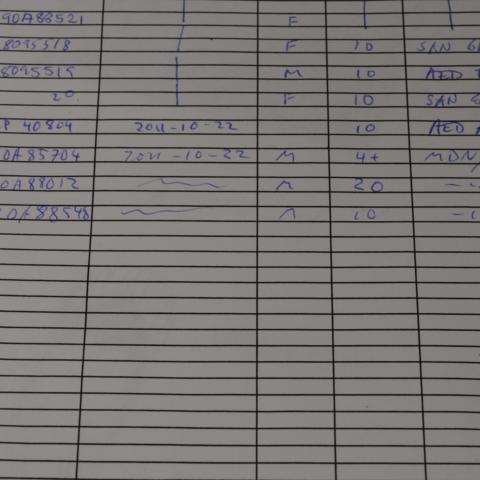 90A88521 F
8095518 F 10 SAN
8095519 M 10 AED
20. F 10 SAN
P 40804 2011-10-22 10 AED
0A85704 2011-10-22 M 4+ MDN
0A88012 M 20
88548 10